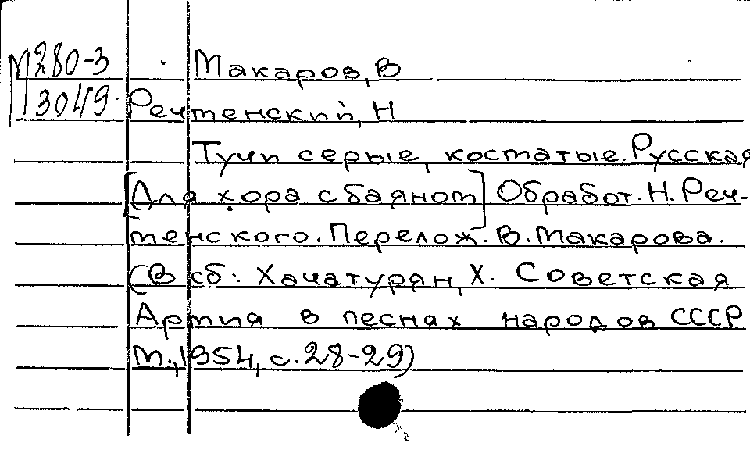 М280-3 Макаров, В
13049 Речменский, Н
Тучи серые, косматые. Русская
[Для хора с баяном] Обработ. Н. Реч-
менского. Перелож. В. Макарова.
(В сб: Хачатурян, Х. Советская
Армия в песнях народов СССР
М., 1954, с. 28-29)